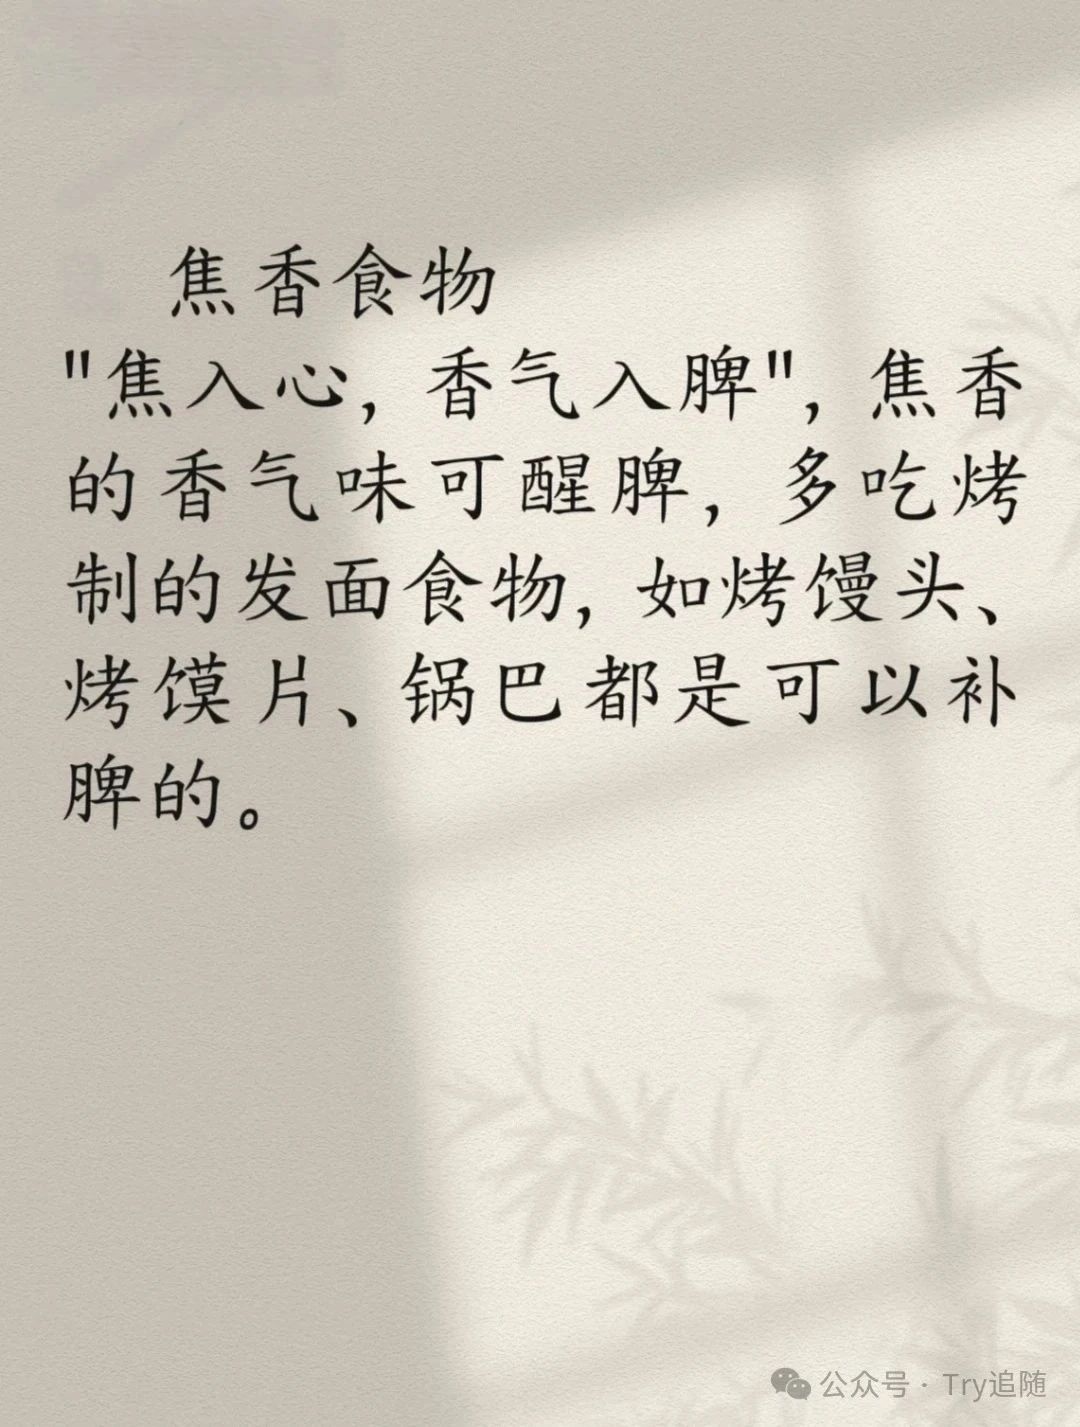 焦香食物
"焦入心，香气入脾"，焦香
的香气味可醒脾，多吃烤
制的发面食物，如烤馒头、
烤馍片、锅巴都是可以补
脾的。
公众号·Try追随